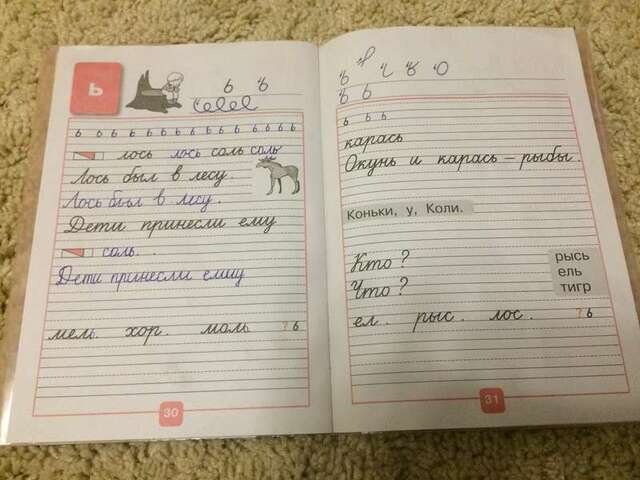 ь
ь ъ
ь ь ь ь ь ь ь ь ь ь ь ь
лось лось соль соль
Лось был в лесу.
Лось был в лесу.
Дети принесли ему
соль.
Дети принесли ему
мель хор моль ? ь
30
ъ
ъ ь ч ж ю
ь ь ь
карась
Окунь и карась – рыбы.
Коньки, у, Коли.
Кто?
Что?
рысь
ель
тигр
ел.. рыс.. лос.. ? ь
31